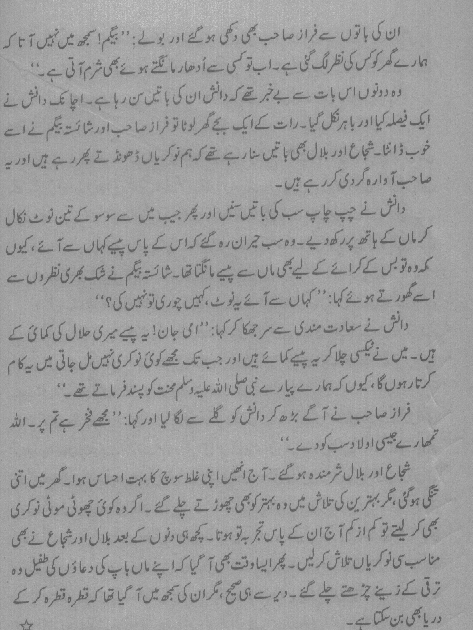 ان کی باتوں سے فراز صاحب بھی دکھی ہو گئے اور بولے: ’’بیگم! سمجھ میں نہیں آتا کہ
ہمارے گھر کو کس کی نظر لگ گئی ہے۔ اب تو کسی سے اُدھار مانگتے ہوئے بھی شرم آتی ہے۔‘‘
وہ دونوں اس بات سے بے خبر تھے کہ دانش ان کی باتیں سن رہا ہے۔ اچانک دانش نے
ایک فیصلہ کیا اور باہر نکل گیا۔ رات کے ایک بجے گھر لوٹا تو فراز صاحب اور شائستہ بیگم نے اسے
خوب ڈانٹا۔ شجاع اور بلال بھی باتیں سنا رہے تھے کہ ہم نوکریاں ڈھونڈتے پھر رہے ہیں اور یہ
صاحب آوارہ گردی کر رہے ہیں۔
دانش نے چپ چاپ سب کی باتیں سنیں اور پھر جیب میں سے سو سو کے تین نوٹ نکال
کر ماں کے ہاتھ پر رکھ دیے۔ وہ سب حیران رہ گئے کہ اس کے پاس پیسے کہاں سے آئے، کیوں
کہ وہ تو بس کے کرائے کے لیے بھی ماں سے پیسے مانگتا تھا۔ شائستہ بیگم نے شک بھری نظروں سے
اسے گھورتے ہوئے کہا: ’’کہاں سے آئے یہ نوٹ، کہیں چوری تو نہیں کی؟‘‘
دانش نے سعادت مندی سے سر جھکا کر کہا: ’’امی جان! یہ پیسے میری حلال کی کمائی کے
ہیں۔ میں نے ٹیکسی چلا کر یہ پیسے کمائے ہیں اور جب تک مجھے کوئی نوکری نہیں مل جاتی میں یہ کام
کرتا رہوں گا، کیوں کہ ہمارے پیارے نبی صلی اللہ علیہ وسلم محنت کو پسند فرماتے تھے۔‘‘
فراز صاحب نے آگے بڑھ کر دانش کو گلے سے لگا لیا اور کہا: ’’مجھے فخر ہے تم پر۔ اللہ
تمھارے جیسی اولاد سب کو دے۔‘‘
شجاع اور بلال شرمندہ ہو گئے۔ آج انھیں اپنی غلط سوچ کا بہت احساس ہوا۔ گھر میں اتنی
تنگی ہو گئی، مگر بہترین کی تلاش میں وہ بہتر کو بھی چھوڑتے چلے گئے۔ اگر وہ کوئی چھوٹی موٹی نوکری
بھی کر لیتے تو کم از کم آج ان کے پاس تجربہ تو ہوتا۔ کچھ ہی دنوں کے بعد بلال اور شجاع نے بھی
مناسب سی نوکریاں تلاش کر لیں۔ پھر ایسا وقت بھی آ گیا کہ اپنے ماں باپ کی دعاؤں کی طفیل وہ
ترقی کے زینے چڑھتے چلے گئے۔ دیر سے ہی صحیح، مگر ان کی سمجھ میں آ گیا تھا کہ قطرہ قطرہ کر کے
دریا بھی بن سکتا ہے۔ ☆